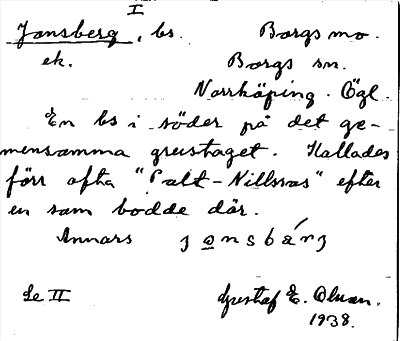 I
Jonsberg, bs. Borgs mo.
ek. Borgs sn.
Norrköping. Ögl.
En bs i söder på det ge-
mensamma grustaget. Kallades
förr ofta "Palt-Nillssas" efter
en som bodde där.
Annars jonsbárj
Se II Gustaf E. Olsson.
1938.